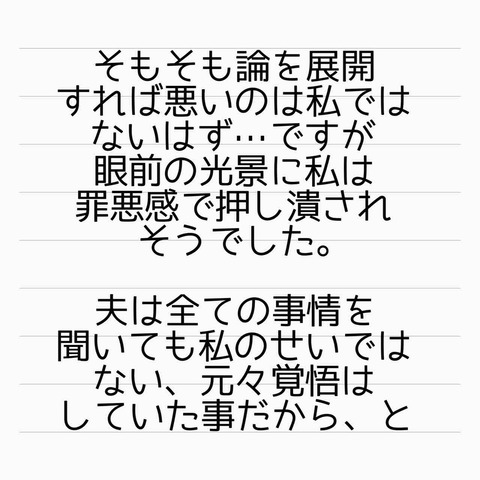 そもそも論を展開
すれば悪いのは私では
ないはず…ですが
眼前の光景に私は
罪悪感で押し潰され
そうでした。
夫は全ての事情を
聞いても私のせいでは
ない、元々覚悟は
していた事だから、と